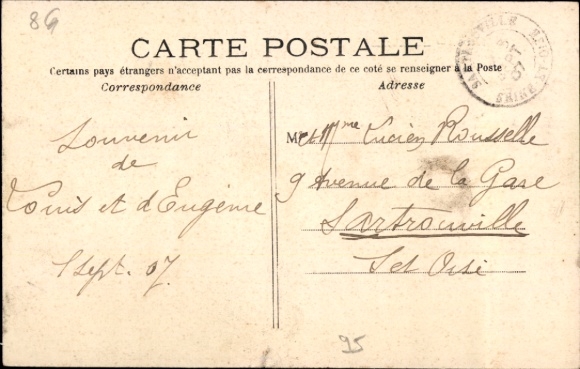 86
CARTE POSTALE
Certains pays étrangers n'acceptant pas la correspondance de ce coté se renseigner à la Poste
Correspondance
Adresse
Souvenir
de
Louis et d'Eugénie
1 Sept. 07.
M et Mme Lucien Rousselle
9 Avenue de la Gare
Sartrouville
S et Oise
95